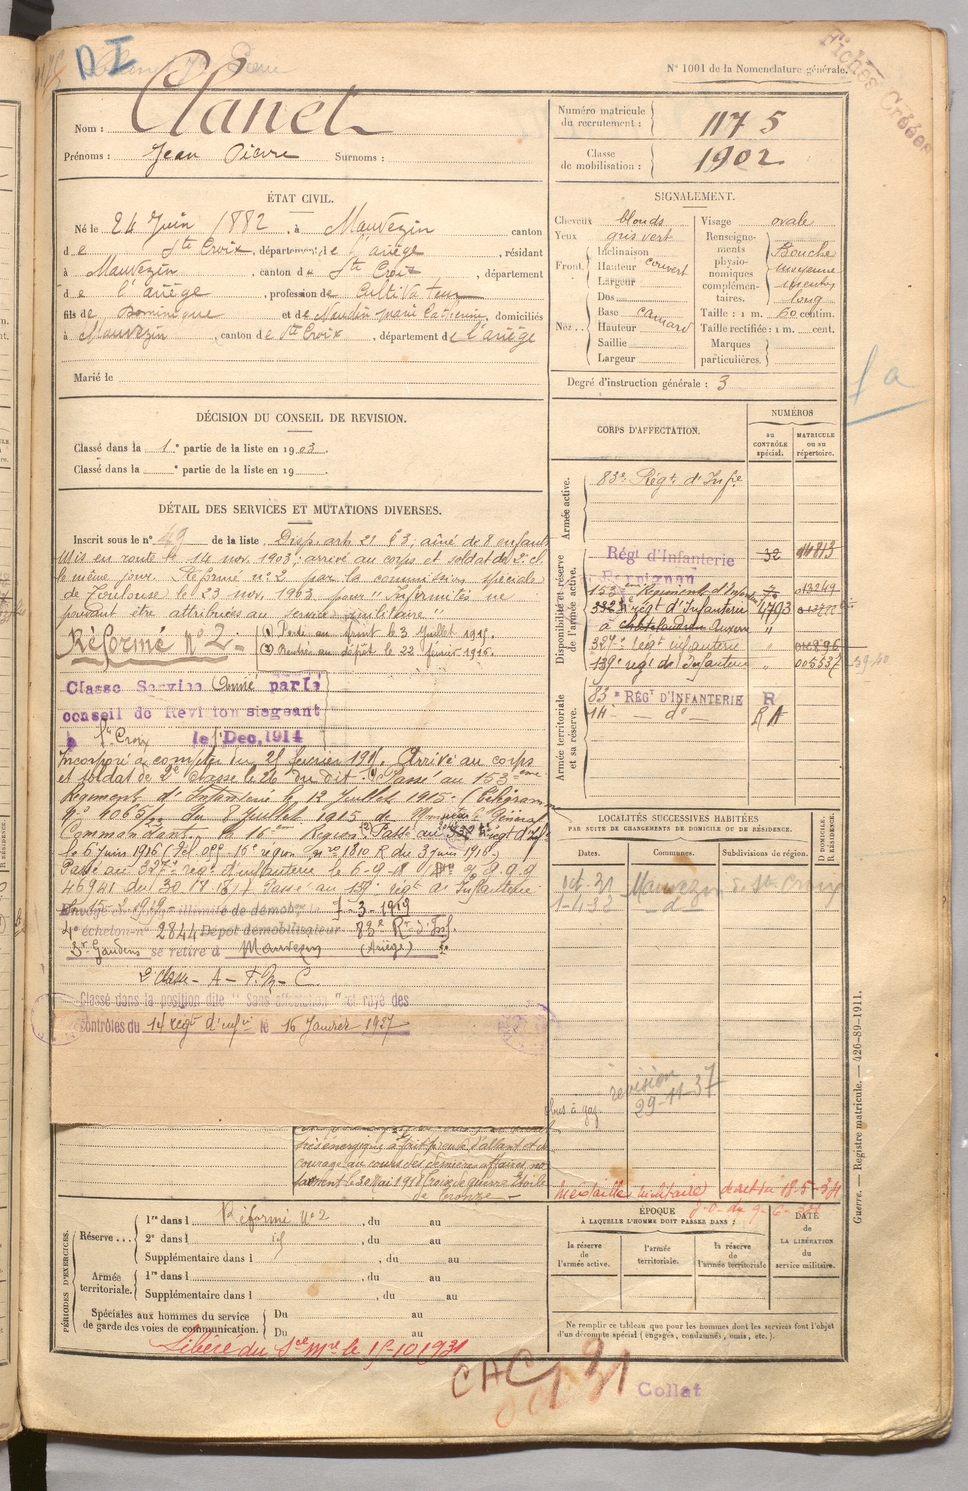 D I
N° 1001 de la Nomenclature générale.
Fiches Créées
Nom : Clanet
Prénoms : Jean Pierre Surnoms :
Numéro matricule du recrutement : 1175
Classe de mobilisation : 1902
ÉTAT CIVIL.
Né le 24 Juin 1882, à Mauvezin canton
de Ste Croix, département de l'ariège, résidant
à Mauvezin, canton de Ste Croix, département
de l'ariège, profession de Cultivateur
fils de Dominique et de Marie Catherine, domiciliés
à Mauvezin, canton de Ste Croix, département de l'ariège
Marié le
SIGNALEMENT.
Cheveux blonds
Yeux gris vert
Front. Inclinaison
Hauteur couvert
Largeur
Nez.. Dos
Base camard
Hauteur
Saillie
Largeur
Visage ovale
Renseignements physionomiques complémentaires. Bouche moyenne menton long
Taille : 1 m. 60 centim.
Taille rectifiée : 1 m. cent.
Marques particulières.
Degré d'instruction générale : 3
DÉCISION DU CONSEIL DE REVISION.
Classé dans la 1e partie de la liste en 1903.
Classé dans la e partie de la liste en 19
DÉTAIL DES SERVICES ET MUTATIONS DIVERSES.
Inscrit sous le n° 49 de la liste Disp. art. 21 § 3; aîné de 8 enfants
Mis en route le 14 nov. 1903; arrivé au corps et soldat de 2e cl.
le même jour. Réformé n° 2 par la commission spéciale
de Toulouse le 23 nov. 1903 pour "Infirmités ne
pouvant être attribuées au service militaire"
Réformé N° 2
(1) Parti au front le 3 Juillet 1915.
(2) Rentré au dépôt le 22 février 1916.
Classé Service Armé par le
conseil de Révision siégeant
à Ste Croix le 1 Dec. 1914
Incorporé à compter du 25 février 1915. Arrivé au corps
et soldat de 2e classe le 26 du dit. (1) Passé au 153ème
Régiment d'Infanterie le 12 Juillet 1915. (Télégramme
n° 4065/ du 8 Juillet 1915 de le Général
Commandant la 16ème Région. (2) Passé au 332e régt d'Inf.
le 6 juin 1916 16e région n° 1810 R du 3 juin 1916.
Passé au 327e régt d'infanterie le 6-9-18
46941 du 30 Passé au 159e régt d'Infanterie
le 15-2-1919
Envoyé en congé illimité de démobon le 7-3-1919
4e échelon n° 2844 Dépôt démobilisateur 83e Rt d'Inf.
St Gaudens se retire à Mauvezin (Ariège)
Classé dans la position dite "Sans affectation" et rayé des
contrôles du 14 régt d'infie le 16 Janvier 1927
très énergique a fait preuve d'allant et de
courage au cours des dernières affaires no-
tamment le 30 Mai 1918 Croix de guerre Étoile
de bronze.
CORPS D'AFFECTATION.
NUMÉROS
au contrôle spécial.
MATRICULE ou au répertoire.
Armée active.
83e Régt d'Infie
Disponibilité et réserve de l'armée active.
Régt d'Infanterie 32
Perpignan
153e Régiment d'Infanterie
332e régt d'Infanterie 4793
à Auxerre "
327e régt infanterie "
159e régt de Infanterie " 005537
Armée territoriale et sa réserve.
83e RÉGT D'INFANTERIE R
14 — do — RA
LOCALITÉS SUCCESSIVES HABITÉES
PAR SUITE DE CHANGEMENTS DE DOMICILE OU DE RÉSIDENCE.
Dates. Communes. Subdivisions de région. D DOMICILE. R RÉSIDENCE.
oct. 31 Mauvezin de Ste Croix
1-4-32 — d —
révision
29-11-37
Médaille militaire
J.O. du 9-6-34
ÉPOQUE
À LAQUELLE L'HOMME DOIT PASSER DANS :
la réserve de l'armée active.
l'armée territoriale.
la réserve de l'armée territoriale
DATE de LA LIBÉRATION du service militaire.
Ne remplir ce tableau que pour les hommes dont les services font l'objet
d'un décompte spécial (engagés, condamnés, omis, etc.).
PÉRIODES D'EXERCICES.
Réserve... 1re dans l Réformé n° 2, du au
2e dans l id, du au
Supplémentaire dans l, du au
Armée territoriale. 1re dans l, du au
Supplémentaire dans l, du au
Spéciales aux hommes du service de garde des voies de communication. Du au
Du au
Libéré du Sce Mre le 15-10-1931
CAC 31
Collat
Guerre. — Registre matricule. — 426-89-1911.